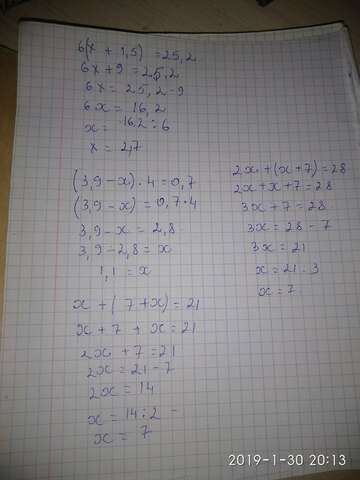 6(x + 1,5) = 25,2
6x + 9 = 25,2
6x = 25,2 - 9
6x = 16,2
x = 16,2 : 6
x = 2,7
(3,9 - x) · 4 = 0,7
(3,9 - x) = 0,7 · 4
3,9 - x = 2,8
3,9 - 2,8 = x
1,1 = x
x + (7 + x) = 21
x + 7 + x = 21
2x + 7 = 21
2x = 21 - 7
2x = 14
x = 14 : 2
x = 7
2x + (x + 7) = 28
2x + x + 7 = 28
3x + 7 = 28
3x = 28 - 7
3x = 21
x = 21 : 3
x = 7
2019-1-30 20:13